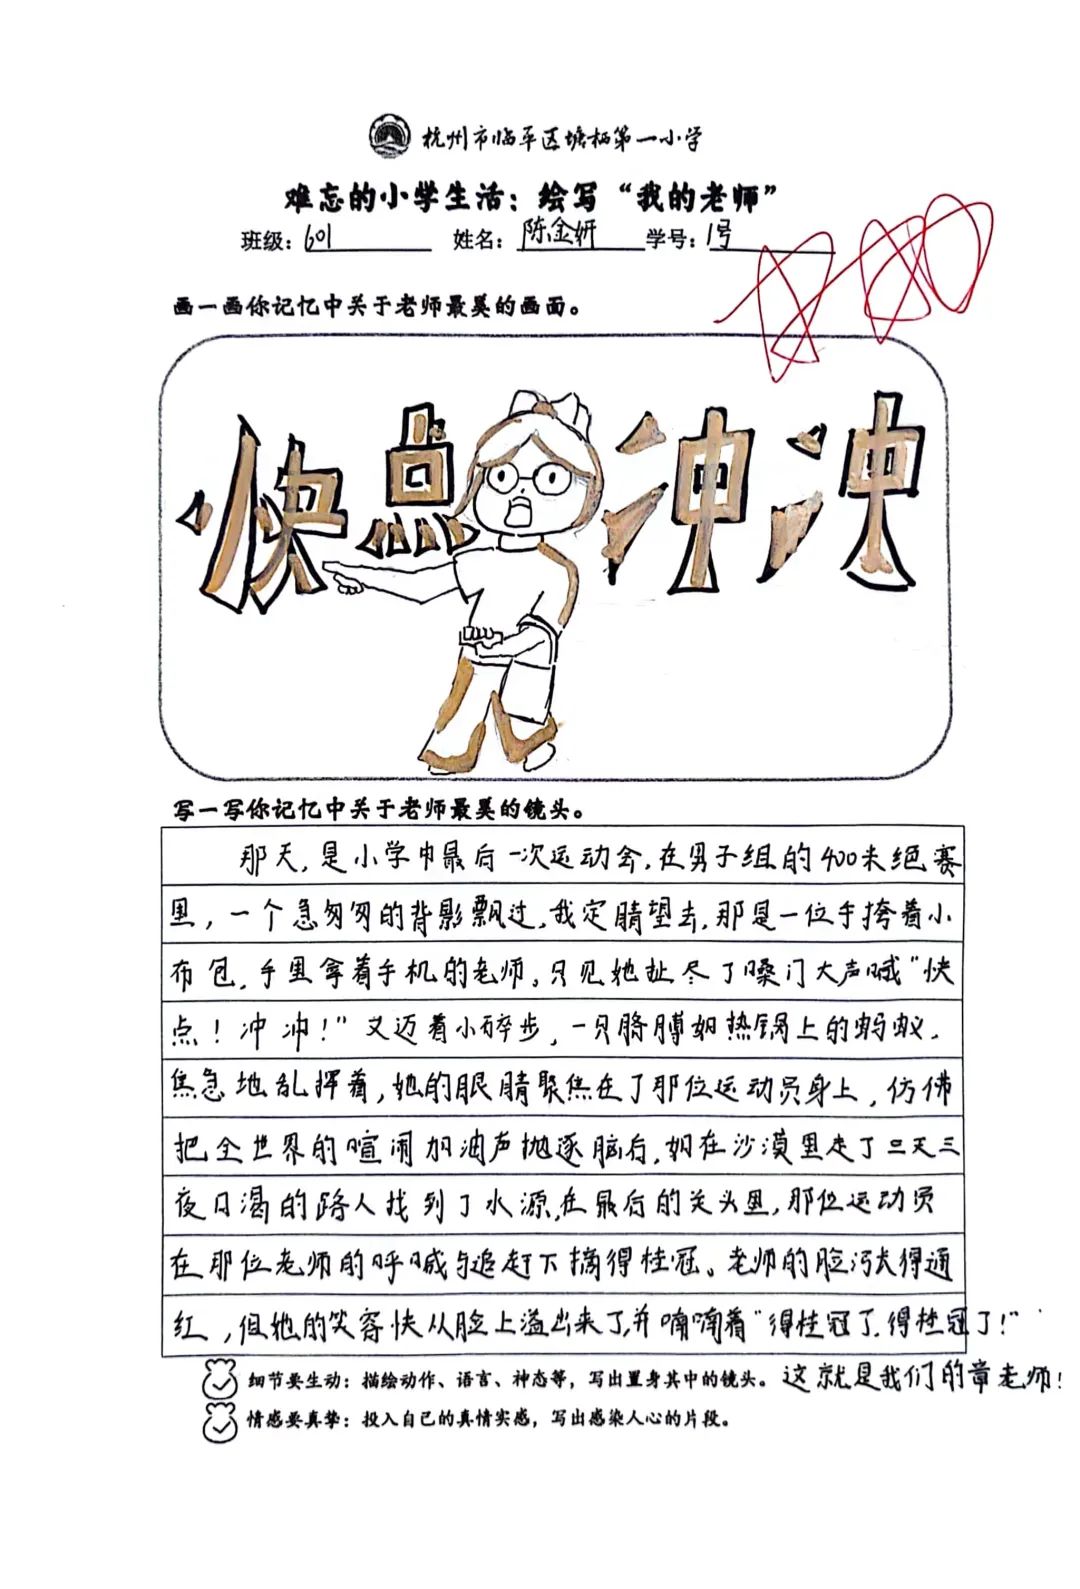 杭州市临平区塘栖第一小学
难忘的小学生活：绘写“我的老师”
班级：601 姓名：陈金妍 学号：1号
画一画你记忆中关于老师最美的画面。
快点冲冲
写一写你记忆中关于老师最美的镜头。
那天，是小学中最后一次运动会，在男子组的400米绝赛
里，一个急匆匆的背影飘过，我定睛望去，那是一位手挎着小
布包，手里拿着手机的老师，只见她扯尽了嗓门大声喊“快
点！冲冲！”又迈着小碎步，一只胳膊如热锅上的蚂蚁，
焦急地乱挥着，她的眼睛聚焦在了那位运动员身上，仿佛
把全世界的喧闹加油声抛逐脑后，如在沙漠里走了三天三
夜口渴的路人找到了水源，在最后的关头里，那位运动员
在那位老师的呼喊与追赶下摘得桂冠。老师的脸涨得通
红，但她的笑容快从脸上溢出来了，并喃喃着“得桂冠了，得桂冠了！”
细节要生动：描绘动作、语言、神态等，写出置身其中的镜头。这就是我们的章老师！
情感要真挚：投入自己的真情实感，写出感染人心的片段。